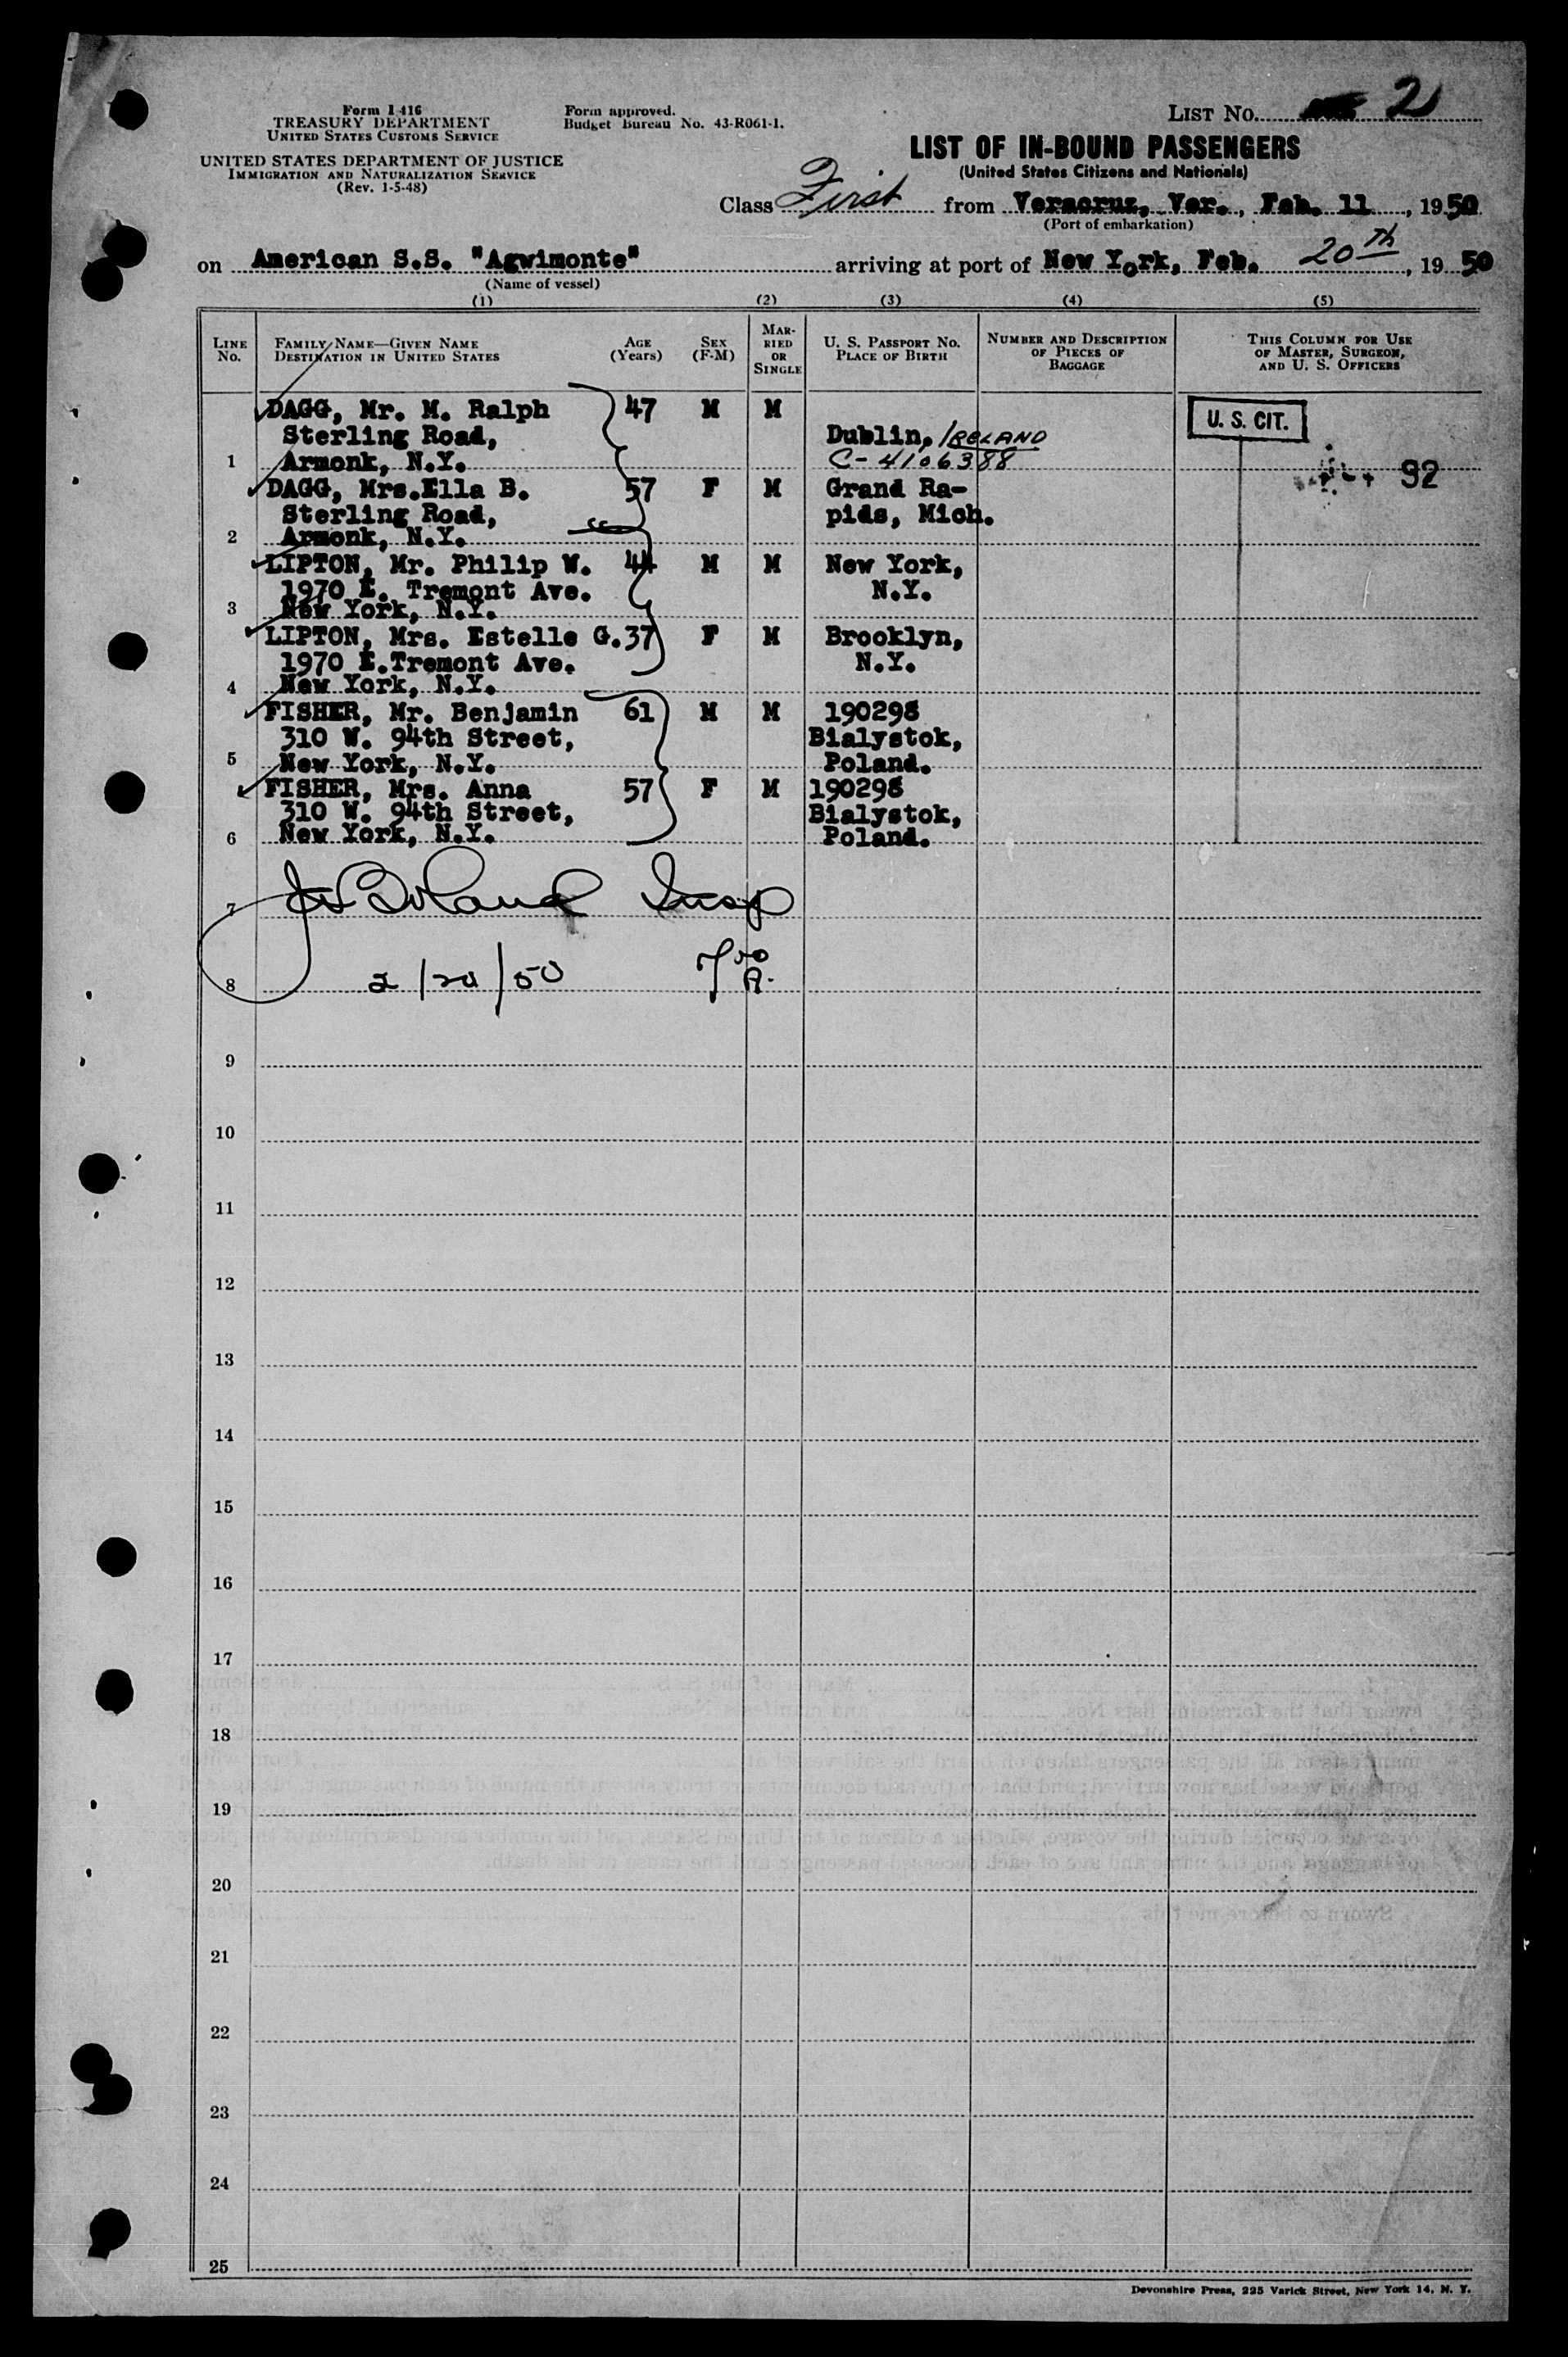 Form I-416
TREASURY DEPARTMENT
UNITED STATES CUSTOMS SERVICE
UNITED STATES DEPARTMENT OF JUSTICE
IMMIGRATION AND NATURALIZATION SERVICE
(Rev. 1-5-48)
Form approved.
Budget Bureau No. 43-R061-1.
LIST No. 2
LIST OF IN-BOUND PASSENGERS
(United States Citizens and Nationals)
Class First from Veracruz, Ver., Feb. 11, 1950
(Port of embarkation)
on American S.S. "Agwimonte" arriving at port of New York, Feb. 20th, 1950
(Name of vessel)
(1) (2) (3) (4) (5)
LINE No.
FAMILY NAME—GIVEN NAME
DESTINATION IN UNITED STATES
AGE (Years)
SEX (F-M)
MARRIED OR SINGLE
U. S. PASSPORT No.
PLACE OF BIRTH
NUMBER AND DESCRIPTION OF PIECES OF BAGGAGE
THIS COLUMN FOR USE OF MASTER, SURGEON, AND U. S. OFFICERS
DAGG, Mr. M. Ralph 47 M M U. S. CIT.
Sterling Road, Dublin, IRELAND
1 Armonk, N.Y. C-4106388 92
DAGG, Mrs.Ella B. 57 F M Grand Ra-
Sterling Road, pids, Mich.
2 Armonk, N.Y.
LIPTON, Mr. Philip W. 44 M M New York,
1970 E. Tremont Ave. N.Y.
3 New York, N.Y.
LIPTON, Mrs. Estelle G. 37 F M Brooklyn,
1970 E.Tremont Ave. N.Y.
4 New York, N.Y.
FISHER, Mr. Benjamin 61 M M 190298
310 W. 94th Street, Bialystok,
5 New York, N.Y. Poland.
FISHER, Mrs. Anna 57 F M 190298
310 W. 94th Street, Bialystok,
6 New York, N.Y. Poland.
7 Insp
8 2/20/50
9
10
11
12
13
14
15
16
17
18
19
20
21
22
23
24
25
Devonshire Press, 225 Varick Street, New York 14, N. Y.